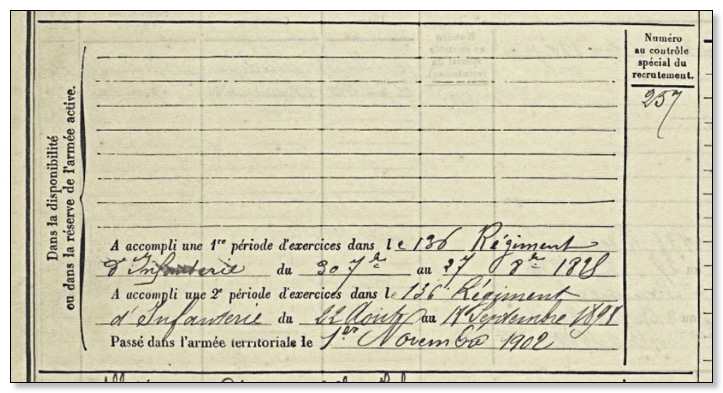 Numéro
au contrôle
spécial du
recrutement.
257
Dans la disponibilité
ou dans la réserve de l'armée active.
A accompli une 1re période d'exercices dans le 136 Régiment
d'Infanterie du 30 7bre au 27 8bre
A accompli une 2e période d'exercices dans le 136 Régiment
d'Infanterie du 22 Août au Septembre
Passé dans l'armée territoriale le 1er Novembre 1902